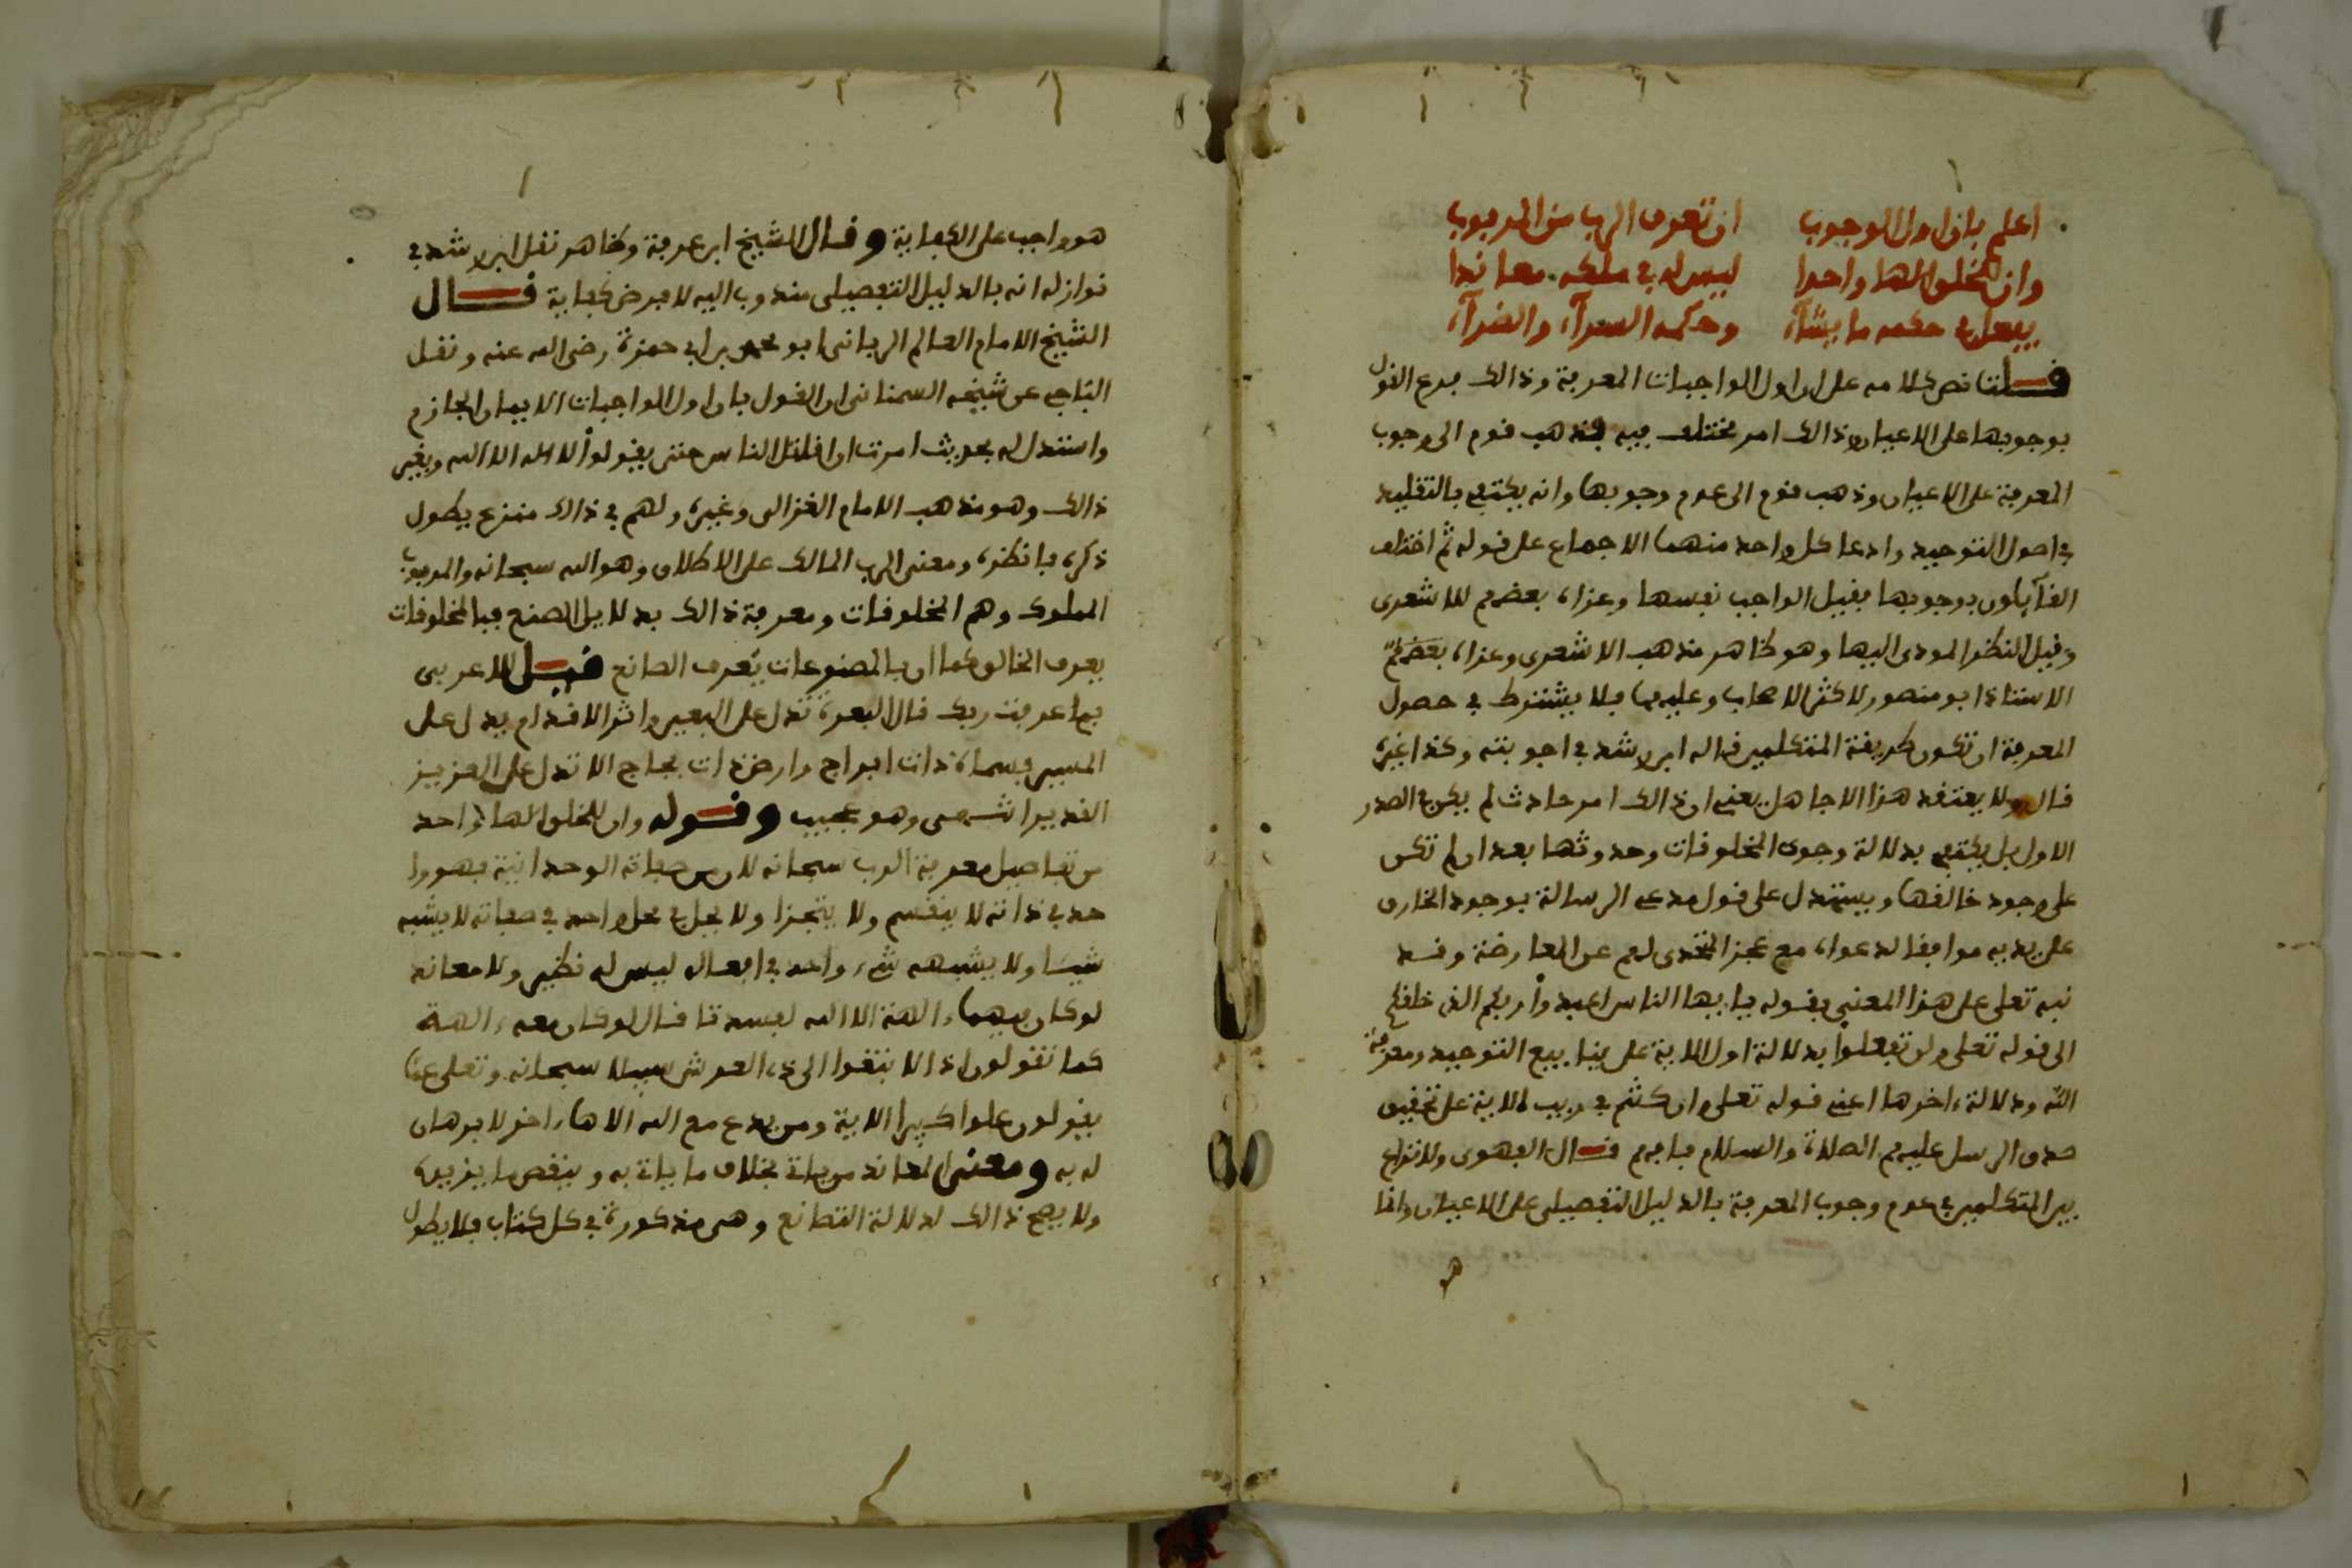 اعلم بان اول الوجوب ان تعرف الرب من المربوب
وان للخلق الها واحدا ليس له في ملكه معاندا
يفعل في حكمه ما يشآء وحكمه السرآء والضرآء
قلت نص كلامه على ان اول الواجبات المعرفة وذالك فرع القول
بوجوبها على الاعيان وذالك امر مختلف فيه فذهب قوم الى وجوب
المعرفة على الاعيان وذهب قوم الى عدم وجوبها وانه يكتفى بالتقليد
في اصول التوحيد وادعا كل واحد منهما الاجماع على قوله ثم اختلف
القآيلون بوجوبها فقيل الواجب نفسها وعزاه بعضهم للاشعرى
وقيل النظر المودى اليها وهو ظاهر مذهب الاشعرى وعزاه بعضهم
الاستاذ ابو منصور لاكثر الاصحاب وعليهما فلا يشترط في حصول
المعرفة ان تكون طريقة المتكلمين قاله ابن رشد في اجوبته وكذا غيره
قال ولا يعتقد هذا الا جاهل يعنى ان ذالك امر حادث لم يكن في الصدر
الاول بل يكتفى بدلالة وجود المخلوقات وحدوثها بعد ان لم تكن
على وجود خالقها ويستدل على قول مدعى الرسالة بوجود الخارق
على يديه موافقا لدعواه مع عجز المتحدى لهم عن المعارضة وقد
نبه تعلى على هذا المعنى بقوله يايها الناس اعبدوا ربكم الذى خلقكم
الى قوله تعلى ولن تفعلوا بدلالة اول الاية على ينابيع التوحيد ومعرفة
الله ودلالة ءاخرها اعنى قوله تعلى وان كنتم في ريب الاية على تحقيق
صدق الرسل عليهم الصلاة والسلام فافهم قال الفهرى ولا نزاع
بين المتكلمين في عدم وجوب المعرفة بالدليل التفصيلى على الاعيان وانما
هو
هو واجب على الكفاية وقال الشيخ ابن عرفة وظاهر نقل ابن رشد في
نوازله انه بالدليل التفصيلى مندوب اليه لا فرض كفاية قال
الشيخ الامام العالم الربانى ابو محمد بن ابى حمزة رضى الله عنه ونقل
الباجى عن شيخه السمنانى ان القول بان اول الواجبات الايمان الجازم
واستدل له بحديث امرت ان اقاتل الناس حتى يقولوا لا اله الا الله وبغير
ذالك وهو مذهب الامام الغزالى وغيره ولهم في ذالك منزع يطول
ذكره فانظره ومعنى الرب المالك على الاطلاق وهو الله سبحانه والمربوب
المملوك وهم المخلوقات ومعرفة ذالك بدلايل الصنع فبالمخلوقات
يعرف الخالق كما ان بالمصنوعات يعرف الصانع قيل للاعربى
بما عرفت ربك قال البعرة تدل على البعير واثر الاقدام يدل على
المسير فسماء ذات ابراج وارض ذات فجاج الا تدل على العزيز
القدير انتهى وهو عجيب وقوله وان للخلق الها واحد
من تفاصيل معرفة الرب سبحانه لان من صفاته الوحدانية فهو وا
حد في ذاته لا ينقسم ولا يتجزا ولا يحل في محل واحد في صفاته لا يشبه
شيئا ولا يشبهه شىء واحد في افعاله ليس له نظير ولا معاند
لو كان فيهما ءالهة الا الله لفسدتا قال لو كان معه ءالهة
كما تقولون اذا لابتغوا الى ذى العرش سبيلا سبحانه وتعلى عما
يقولون علوا كبيرا الاية ومن يدع مع الله الاها ءاخر لا برهان
له به ومعنى المعاند من ياتى بخلاف ما ياتى به وينقص ما يزيده
ولا يصح ذالك لدلالة التمانع وهى مذكورة في كل كتاب فلا يطول